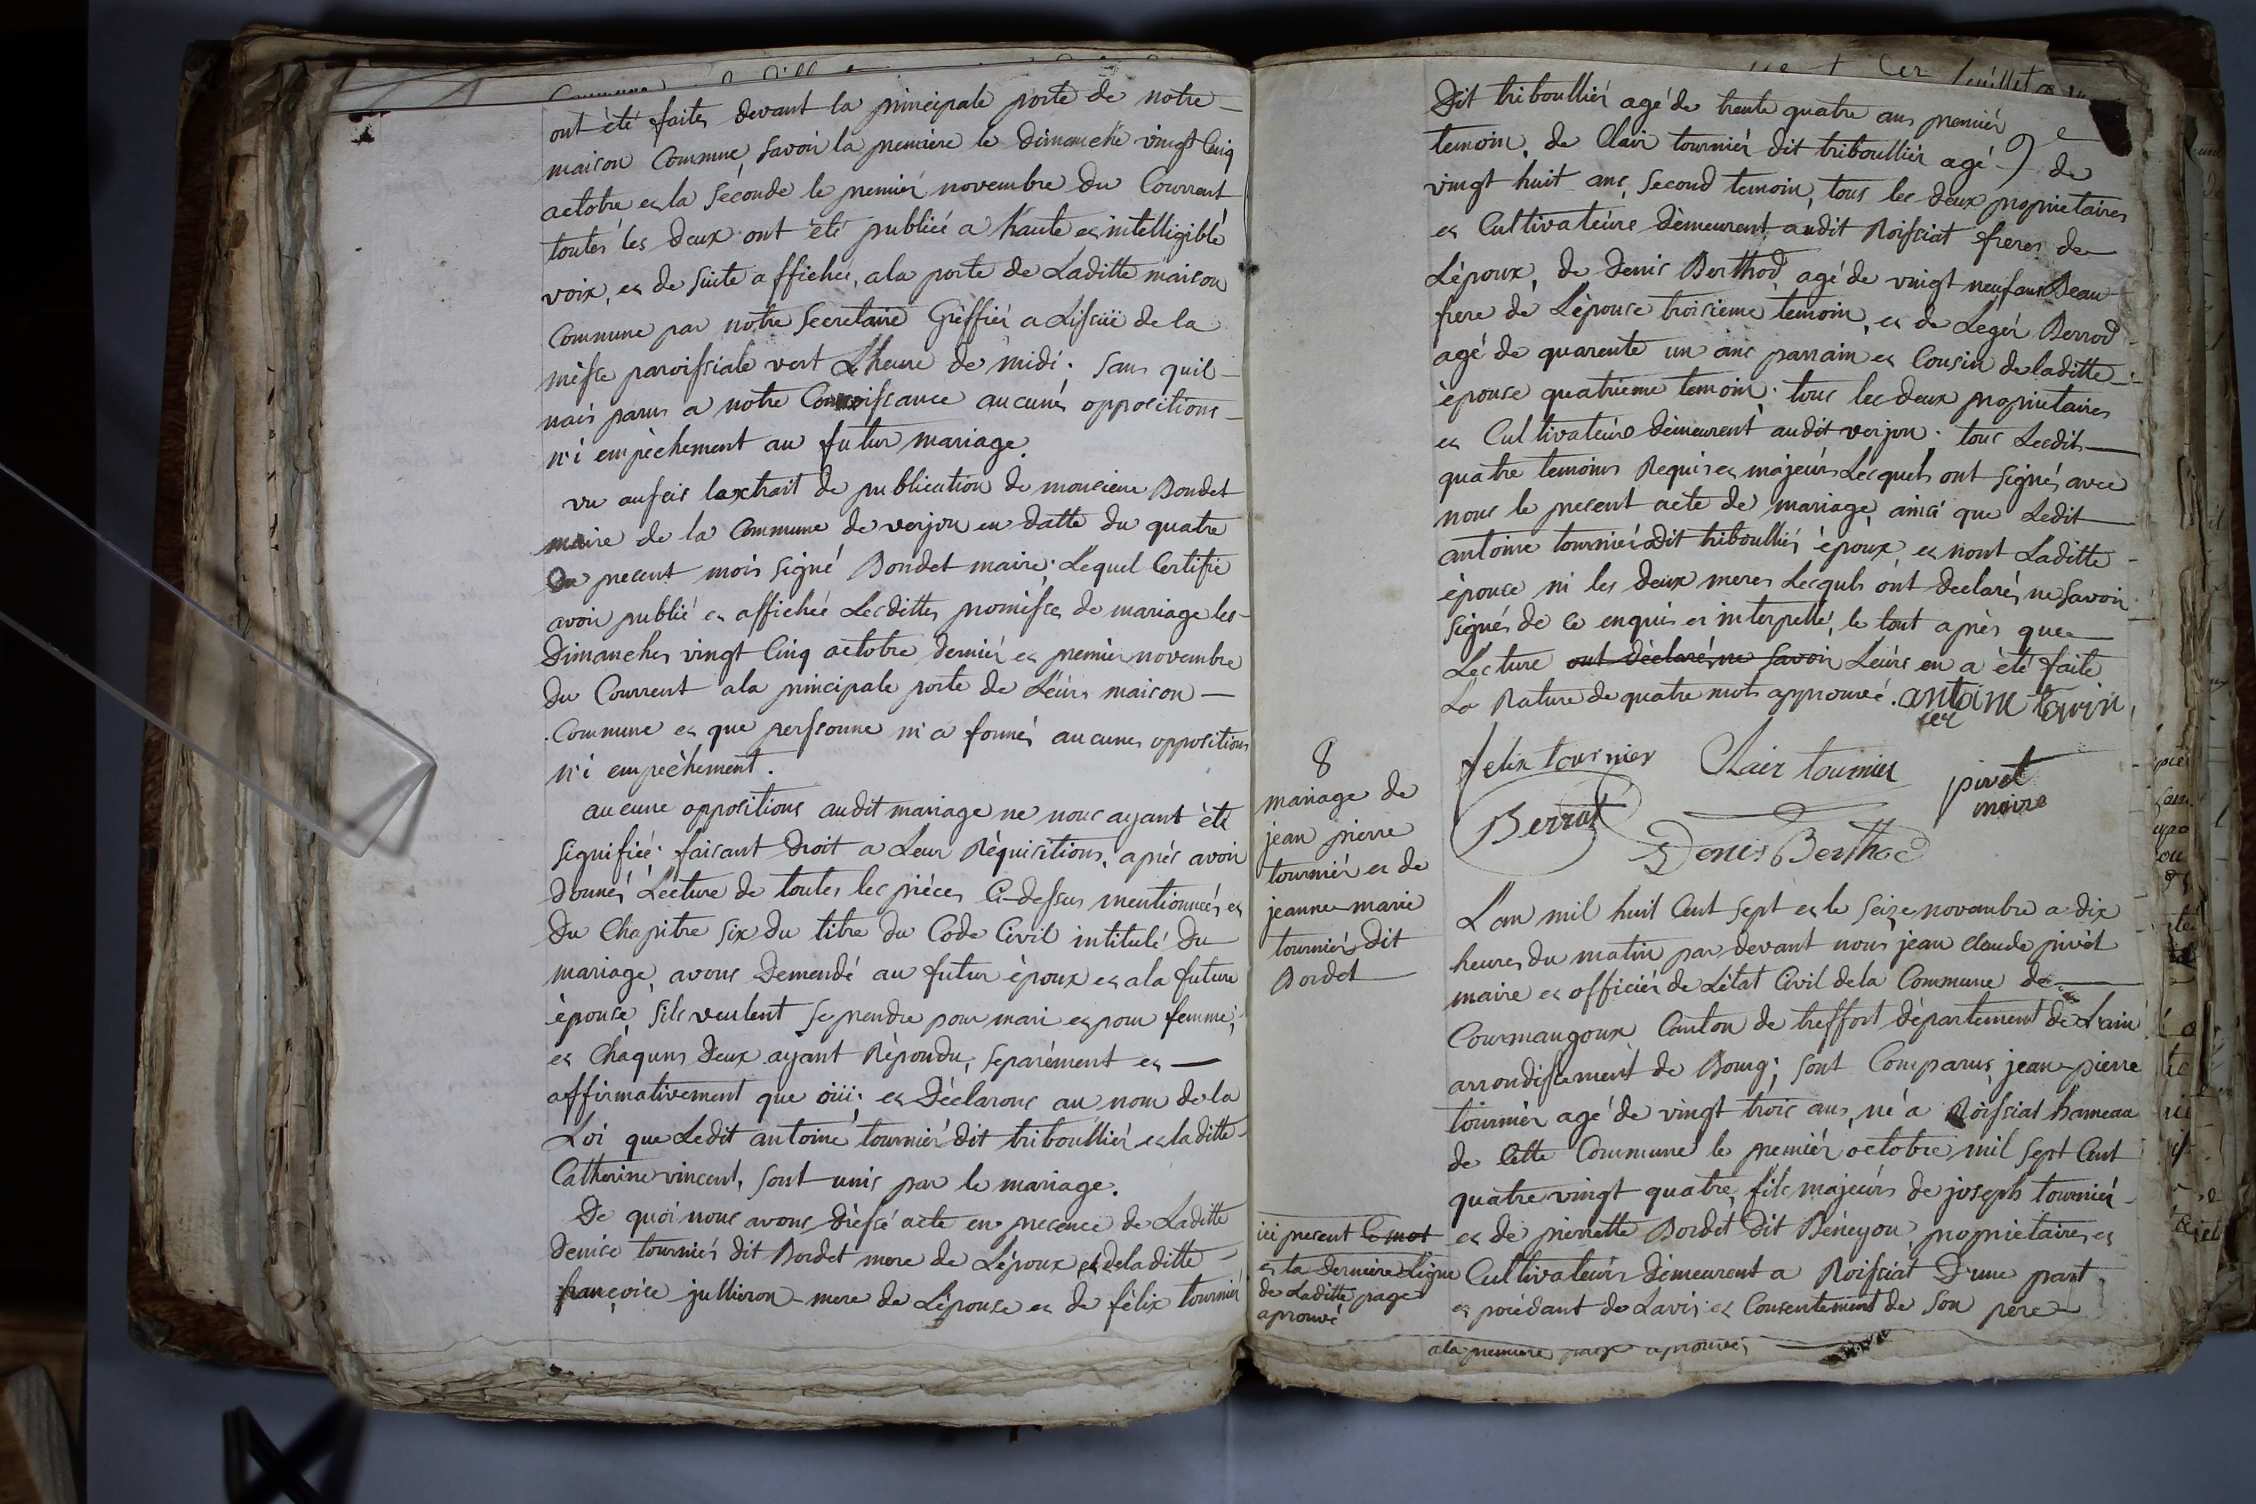 ont été faites devant la principale porte de notre
maison Commune, savoir la premiere le dimanche vingt Cinq
octobre et la séconde le premiér novembre du Courrent
toutes les deux ont été publiée a haute et intelligible
voix, et de suite affichée, a la porte de Laditte maison
Commune par notre Secretaire Gréffiér a Lissüe de la
messe paroissiale vert L'heure de midi. Sans quil
nais parus a notre Connoissance aucunes oppositions
n'i empêchement au futur mariage.
vu aussis lextrait de publication de monsieur Bondet
maire de la Commune de verjon en datte du quatre
Du present mois signé Bondet maire. Lequel Certifie
avoir publié et affichée Lesdittes promisses de mariage les
Dimanches vingt Cinq octobre derniér et premier novembre
du Courrent a la principale porte de Leurs maison
Commune et que perssonne n'a formés aucunes oppositions
n'i empechement.
aucune oppositions audit mariage ne nous ayant été
signifiée. faisant Droit a Leur Réquisitions, aprés avoir
Donnés Lecture de toutes les pièces Ci-dessus mentionnées et
du Chapitre six du titre du Code Civil intitulé Du
mariage, avons Demendé au futur époux et a la future
épouse, sils veulent se prendre pour mari et pour femme;
et Chaquns Deux ayant Répondu, separément et
affirmativement que oüi; et Déclarons au nom de la
Loi que Ledit antoine tourniér dit triboulliér et laditte
Catherine vincent, sont unis par le mariage.
De quoi nous avons Dréssé acte en presence de Laditte
Denise tourniér dit Bordet mere de L'époux et de laditte
françoise jullieron mere de L'épouse et de félix tourniér
Dit triboulliér agé de trente quatre ans premiér
temoin, de Clair tourniér dit triboulliér agé de
vingt huit ans, Second temoin, tous les deux proprietaires
et Cultivateurs démeurent audit Roissiat freres de
Lépoux, de Denis Berthod agé de vingt neuf ans Beau
frere de L'épouse troisieme temoin, et de Legér Berrod
agé de quarente un ans parrain et Cousin de laditte
épouse quatrieme temoin. tous les deux proprietaires
et Cultivateurs démeurent audit verjon. tous Lesdits
quatre temoins Requis et majeurs Lesquels ont signés avec
nous le present acte de mariage, ainsi que Ledit
antoine tourniér dit triboulliér époux et nont Laditte
épouse ni les deux meres Lesquels ont declarés ne savoir
signés de ce enquis et interpellé, le tout aprés que
Lecture ont déclarés ne savoir Leurs en a été faite
La Rature de quatre mots approuvée. antoine
felix tournier Clair tournier pivet
maire
Berrod Denis Berthod
8
mariage de
jean pierre
tourniér et de
jeanne marie
tourniér dit
Bordet
L'an mil huit Cent sept et le seize novembre a dix
heures du matin par devant nous jean claude pivet
maire et officiér de L'état Civil de la Commune de
Courmangoux Canton de treffort département de Lain
arrondissement de Bourg; sont Comparus jean pierre
tourniér agé de vingt trois ans, né a Roissiat hameau
de Cette Commune le premiér octobre mil sept Cent
quatre vingt quatre, fils majeurs de joseph tourniér
et de pierrette Bordet dit Béneyon, proprietaires et
Cultivateurs démeurent a Roissiat D'une part
et procédant de Lavis et Consentement de son pere
ici present Ce mot
et la derniere Ligne
de Laditte page
aprouvé
a la premiere page aprouvés